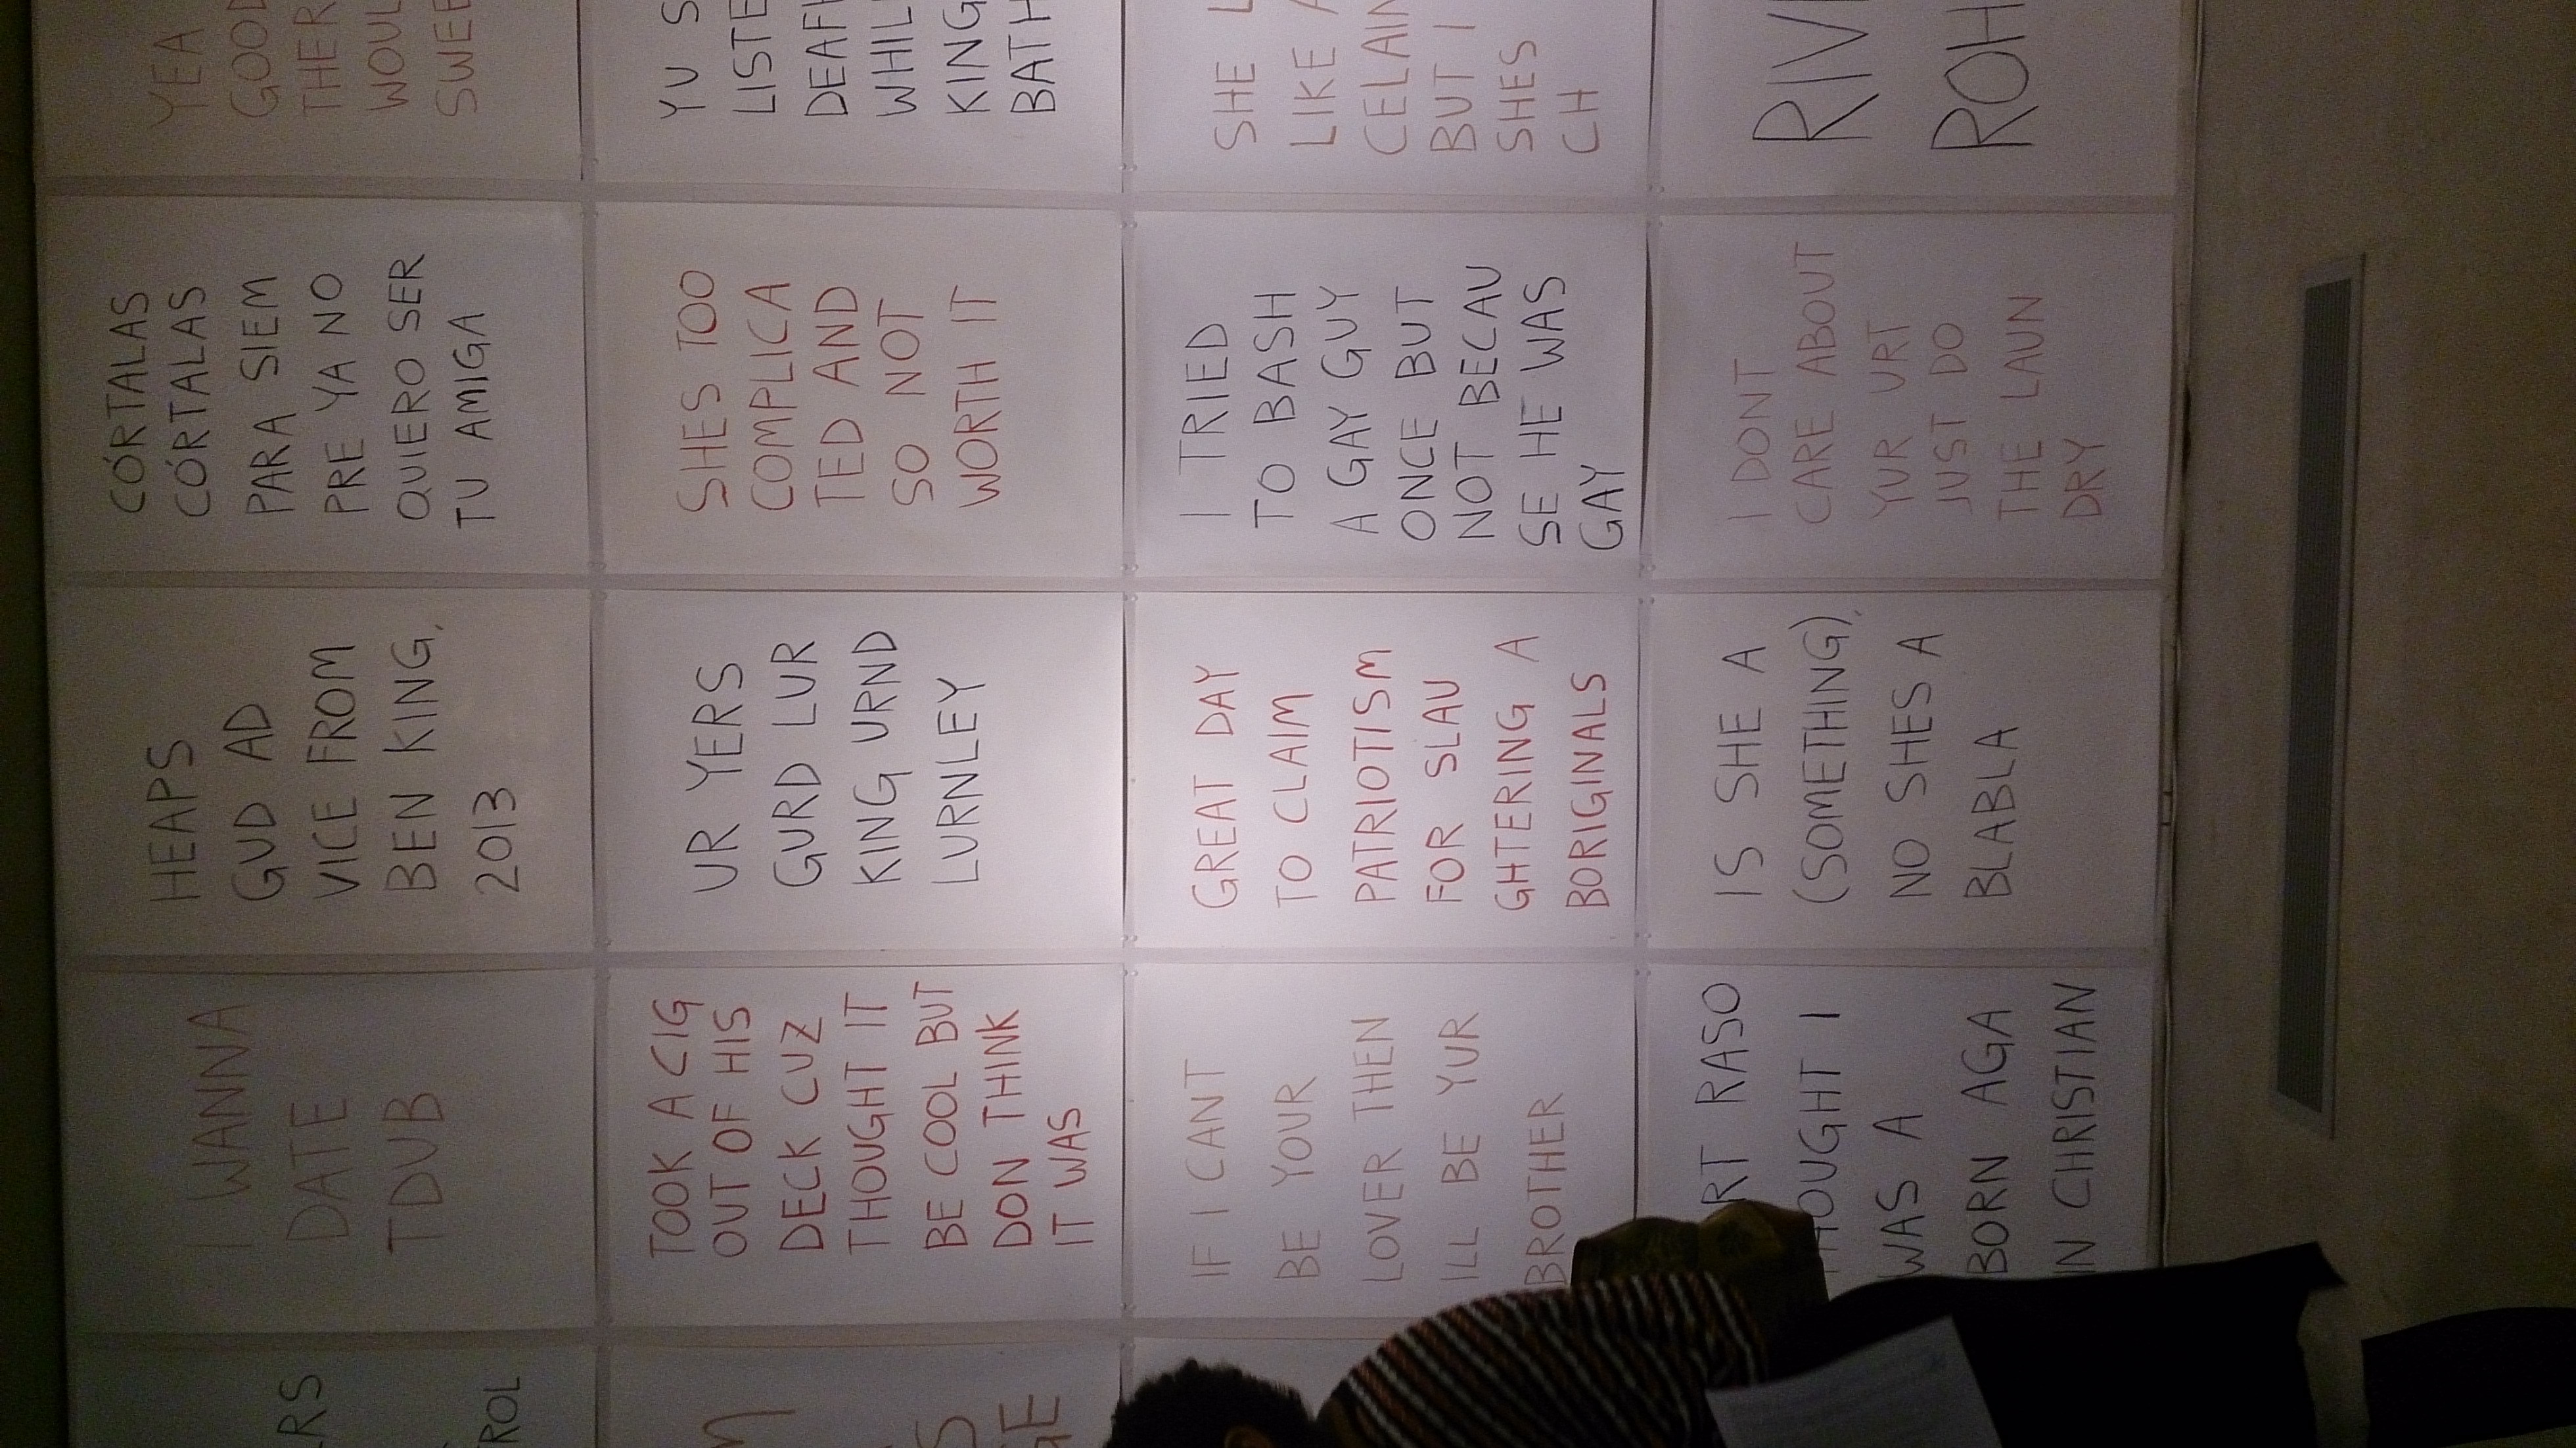 I WANNA
DATE
TDUB
HEAPS
GUD AD
VICE FROM
BEN KING,
2013
CÓRTALAS
CÓRTALAS
PARA SIEM
PRE YA NO
QUIERO SER
TU AMIGA
YEA
GOOD
THER
WOUL
SWEE
TOOK A CIG
OUT OF HIS
DECK CUZ
THOUGHT IT
BE COOL BUT
DON THINK
IT WAS
UR YERS
GURD LUR
KING URND
LURNLEY
SHES TOO
COMPLICA
TED AND
SO NOT
WORTH IT
YU S
LISTE
DEAFH
WHIL
KING
BATH
IF I CANT
BE YOUR
LOVER THEN
ILL BE YUR
BROTHER
GREAT DAY
TO CLAIM
PATRIOTISM
FOR SLAU
GHTERING A
BORIGINALS
I TRIED
TO BASH
A GAY GUY
ONCE BUT
NOT BECAU
SE HE WAS
GAY
SHE L
LIKE A
CELAIN
BUT I
SHES
CH
RT RASO
HOUGHT I
WAS A
BORN AGA
IN CHRISTIAN
IS SHE A
(SOMETHING),
NO SHES A
BLABLA
I DONT
CARE ABOUT
YUR URT
JUST DO
THE LAUN
DRY
RIVI
ROH